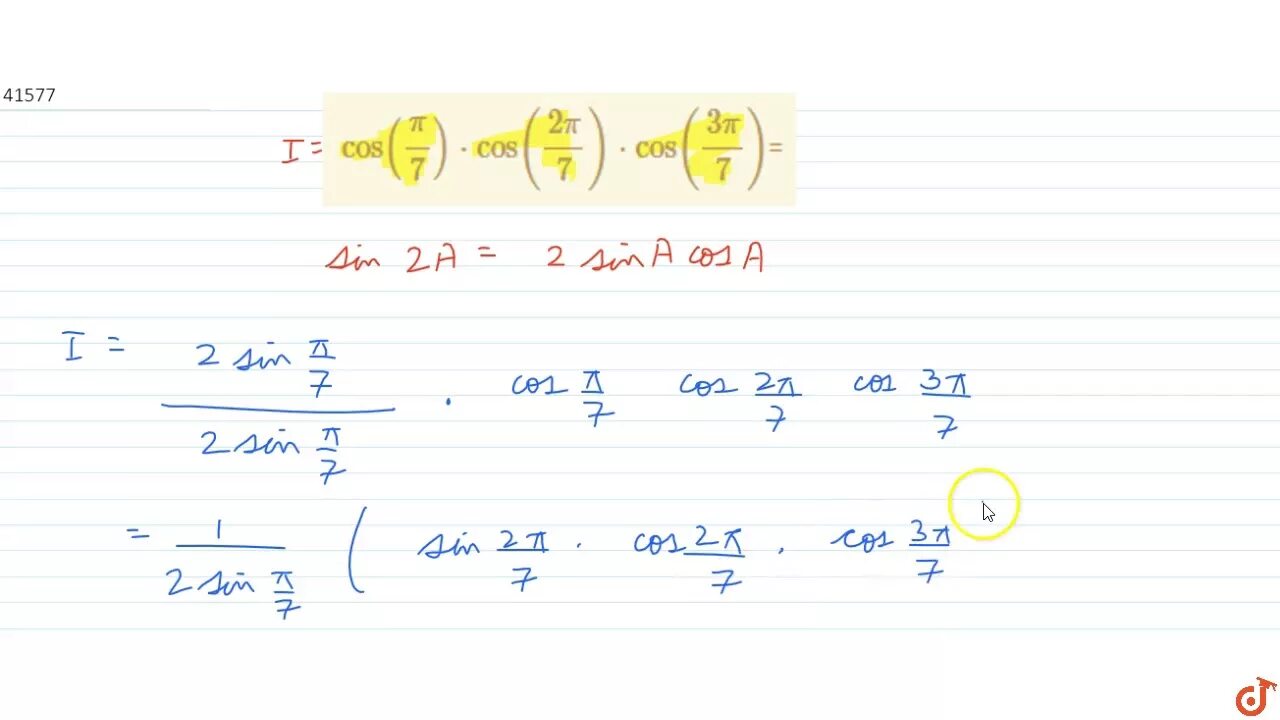 41577
I = cos(π/7) · cos(2π/7) · cos(3π/7) =
sin 2A = 2 sin A cos A
I = (2 sin π/7)/(2 sin π/7) · cos π/7 cos 2π/7 cos 3π/7
= 1/(2 sin π/7) ( sin 2π/7 · cos 2π/7 · cos 3π/7